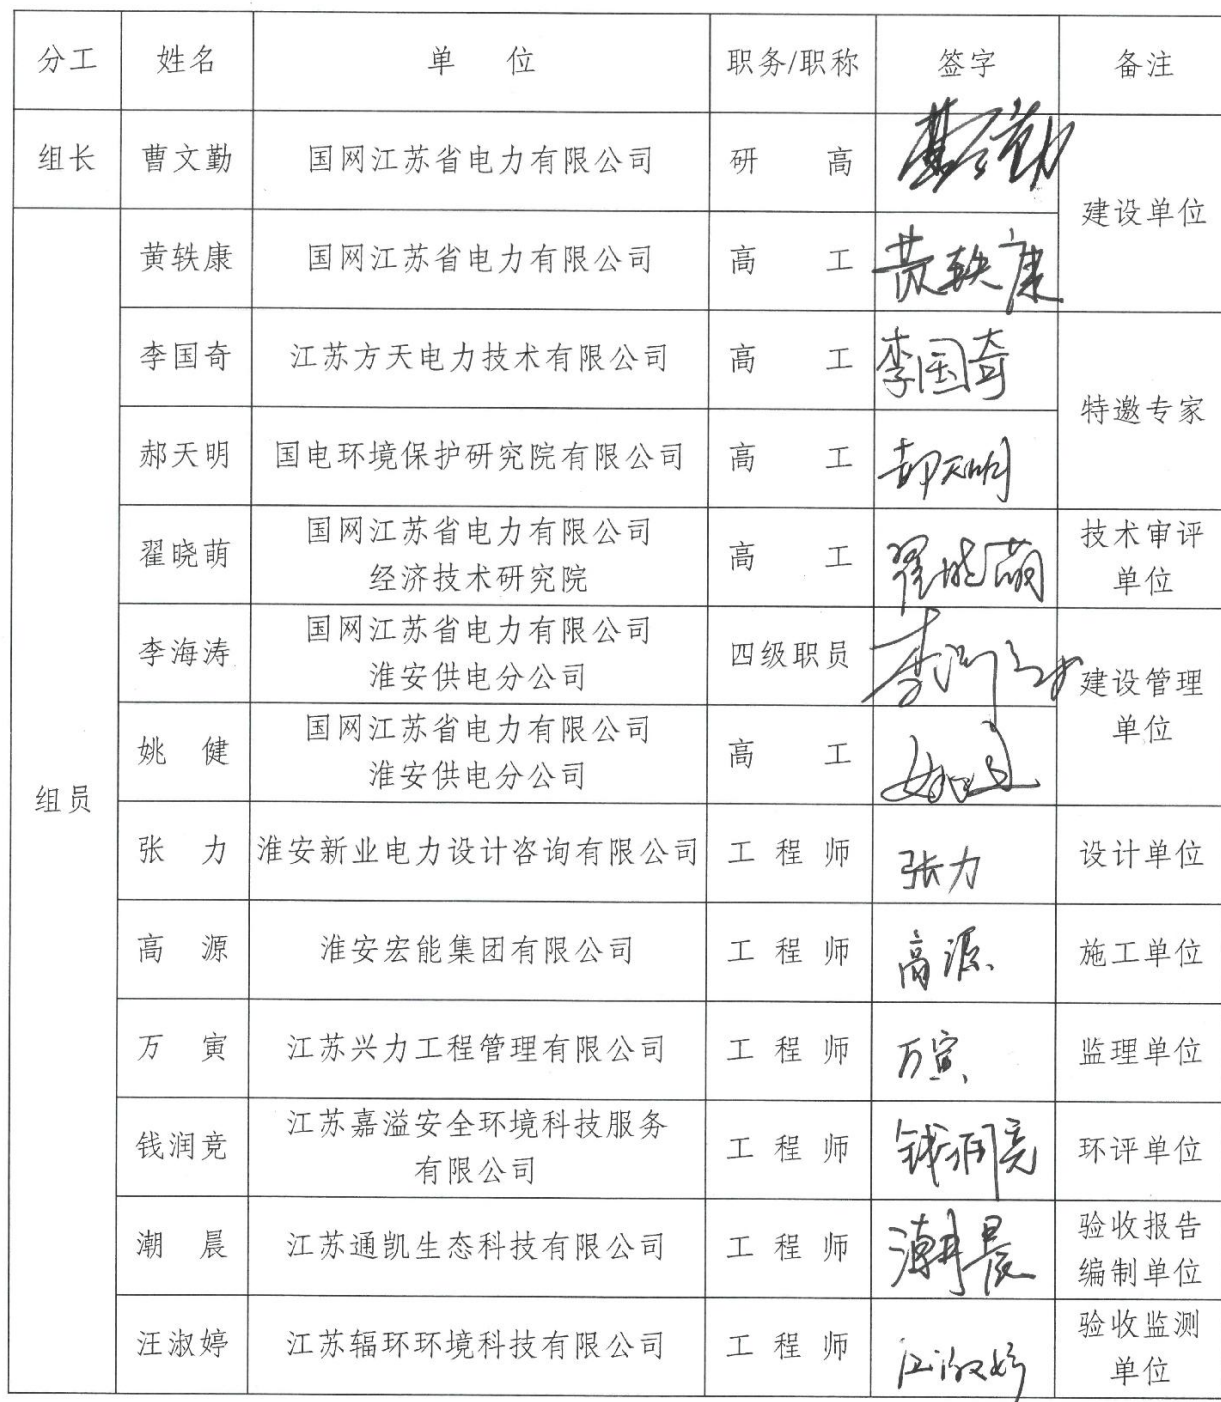 分工 姓名 单 位 职务/职称 签字 备注
组长 曹文勤 国网江苏省电力有限公司 研 高 曹文勤 建设单位
组员
黄轶康 国网江苏省电力有限公司 高 工 黄轶康
李国奇 江苏方天电力技术有限公司 高 工 李国奇 特邀专家
郝天明 国电环境保护研究院有限公司 高 工 郝天明
翟晓萌 国网江苏省电力有限公司
经济技术研究院 高 工 翟晓萌 技术审评
单位
李海涛 国网江苏省电力有限公司
淮安供电分公司 四级职员 李海涛 建设管理
单位
姚 健 国网江苏省电力有限公司
淮安供电分公司 高 工 姚健
张 力 淮安新业电力设计咨询有限公司 工 程 师 张力 设计单位
高 源 淮安宏能集团有限公司 工 程 师 高源 施工单位
万 寅 江苏兴力工程管理有限公司 工 程 师 万寅 监理单位
钱润竞 江苏嘉溢安全环境科技服务
有限公司 工 程 师 钱润竞 环评单位
潮 晨 江苏通凯生态科技有限公司 工 程 师 潮晨 验收报告
编制单位
汪淑婷 江苏辐环环境科技有限公司 工 程 师 汪淑婷 验收监测
单位